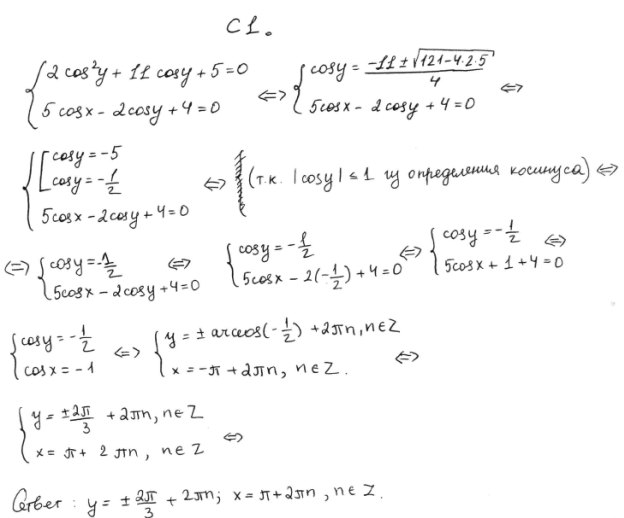 С1.
{ 2cos²y + 11cosy + 5 = 0
5cosx - 2cosy + 4 = 0 ⇔ { cosy = (-11 ± √(121-4·2·5))/4
5cosx - 2cosy + 4 = 0 ⇔
{ [ cosy = -5
cosy = -1/2
5cosx - 2cosy + 4 = 0 ⇔ (т.к. |cosy| ≤ 1 из определения косинуса) ⇔
⇔ { cosy = -1/2
5cosx - 2cosy + 4 = 0 ⇔ { cosy = -1/2
5cosx - 2(-1/2) + 4 = 0 ⇔ { cosy = -1/2
5cosx + 1 + 4 = 0 ⇔
{ cosy = -1/2
cosx = -1 ⇔ { y = ± arccos(-1/2) + 2πn, n∈Z
x = -π + 2πn, n∈Z. ⇔
{ y = ±2π/3 + 2πn, n∈Z
x = π + 2πn, n∈Z ⇔
Ответ: y = ± 2π/3 + 2πn; x = π + 2πn, n∈Z.